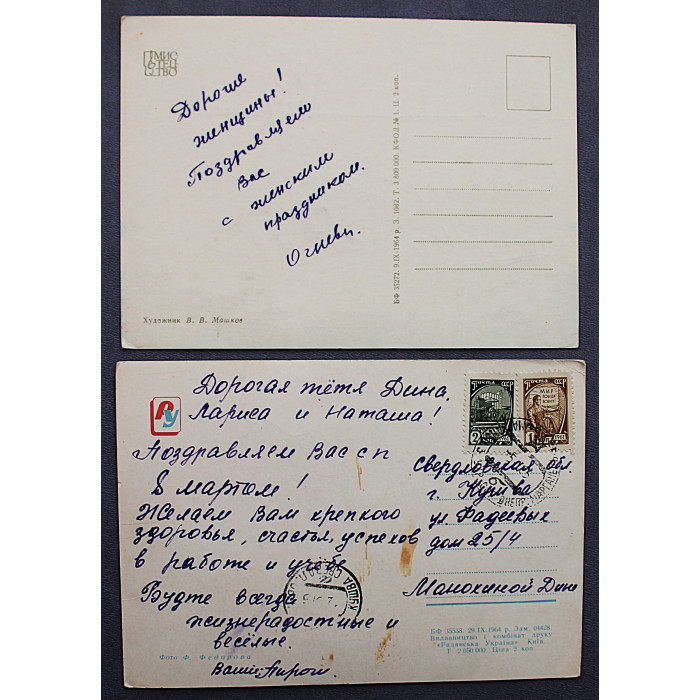 МИС
ТЕЦ
СТВО
Дорогие
женщины!
Поздравляем
Вас
с женским
праздником.
Огневы.
БФ 35272. 9.IX-1964 р. З. 1042. Т. 3 800 000. КФОД № 1. Ц. 2 коп.
Художник В. В. Машков
РУ
Дорогая тётя Дина,
Лариса и Наташа!
Поздравляем Вас с
8 мартом!
Желаем Вам крепкого
здоровья, счастья, успехов
в работе и учебе
Будте всегда
жизнерадостные и
весёлые.
Фото Ф. Федорова
Ваши
ПОЧТА СССР
2
ПОЧТА СССР
МИР
1
Свердловская обл.
г. Кушва
ул. Фадеевых
дом 25/4
Манохиной Дине
КУШВА СВЕРДЛ. ОБЛ.
БФ 35538. 29.IX 1964 р. Зам. 04428.
Видавництво і комбінат друку
«Радянська Україна» Київ.
Т. 2 050 000 Ціна 2 коп